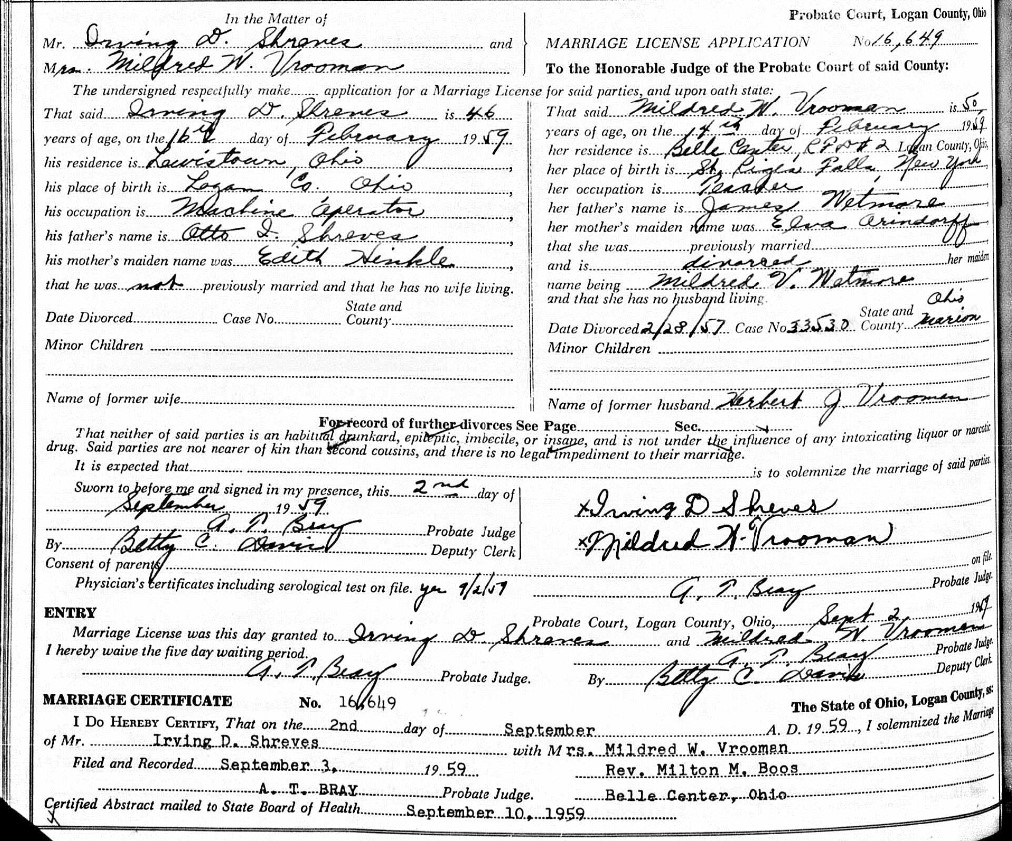 In the Matter of
Mr. Irving D. Shreves and
Mrs. Mildred W. Vrooman
Probate Court, Logan County, Ohio
MARRIAGE LICENSE APPLICATION No. 16,649
To the Honorable Judge of the Probate Court of said County:
The undersigned respectfully make application for a Marriage License for said parties, and upon oath state:
That said Irving D. Shreves is 46
years of age, on the 16th day of February 1959
his residence is Lewistown, Ohio
his place of birth is Logan Co. Ohio
his occupation is Machine Operator
his father's name is Otto I. Shreves
his mother's maiden name was Edith Hinkle
that he was not previously married and that he has no wife living.
Date Divorced Case No. State and County
Minor Children
Name of former wife
That said Mildred W. Vrooman is 50
years of age, on the 14th day of February 1959
her residence is Belle Center, RFD # 2 Logan County, Ohio,
her place of birth is St. Regis Falls New York
her occupation is Teacher
her father's name is James Wetmore
her mother's maiden name was Elva Orindorff
that she was previously married
and is divorced her maiden
name being Mildred V. Wetmore
and that she has no husband living.
Date Divorced 2/28/57 Case No 33530 State and County Ohio Marion
Minor Children
Name of former husband Herbert J Vrooman
For record of further divorces See Page Sec.
That neither of said parties is an habitual drunkard, epileptic, imbecile, or insane, and is not under the influence of any intoxicating liquor or narcotic
drug. Said parties are not nearer of kin than second cousins, and there is no legal impediment to their marriage.
It is expected that is to solemnize the marriage of said parties
Sworn to before me and signed in my presence, this 2nd day of
September 1959
A. T. Bray Probate Judge
By Betty C. Davis Deputy Clerk
xIrving D Shreves
xMildred W. Vrooman
Consent of parents on file.
Physician's certificates including serological test on file. yes 9/2/59 A. T. Bray Probate Judge.
ENTRY
Probate Court, Logan County, Ohio, Sept 2, 1959
Marriage License was this day granted to Irving D Shreves and Mildred W Vrooman
I hereby waive the five day waiting period. A. T. Bray Probate Judge.
A. T. Bray Probate Judge. By Betty C. Davis Deputy Clerk
MARRIAGE CERTIFICATE No. 16,649
The State of Ohio, Logan County, ss:
I DO HEREBY CERTIFY, That on the 2nd day of September A. D. 19 59, I solemnized the Marriage
of Mr. Irving D. Shreves with Mrs. Mildred W. Vrooman
Filed and Recorded September 3, 19 59 Rev. Milton M. Boos
A. T. BRAY Probate Judge. Belle Center, Ohio
Certified Abstract mailed to State Board of Health September 10, 1959